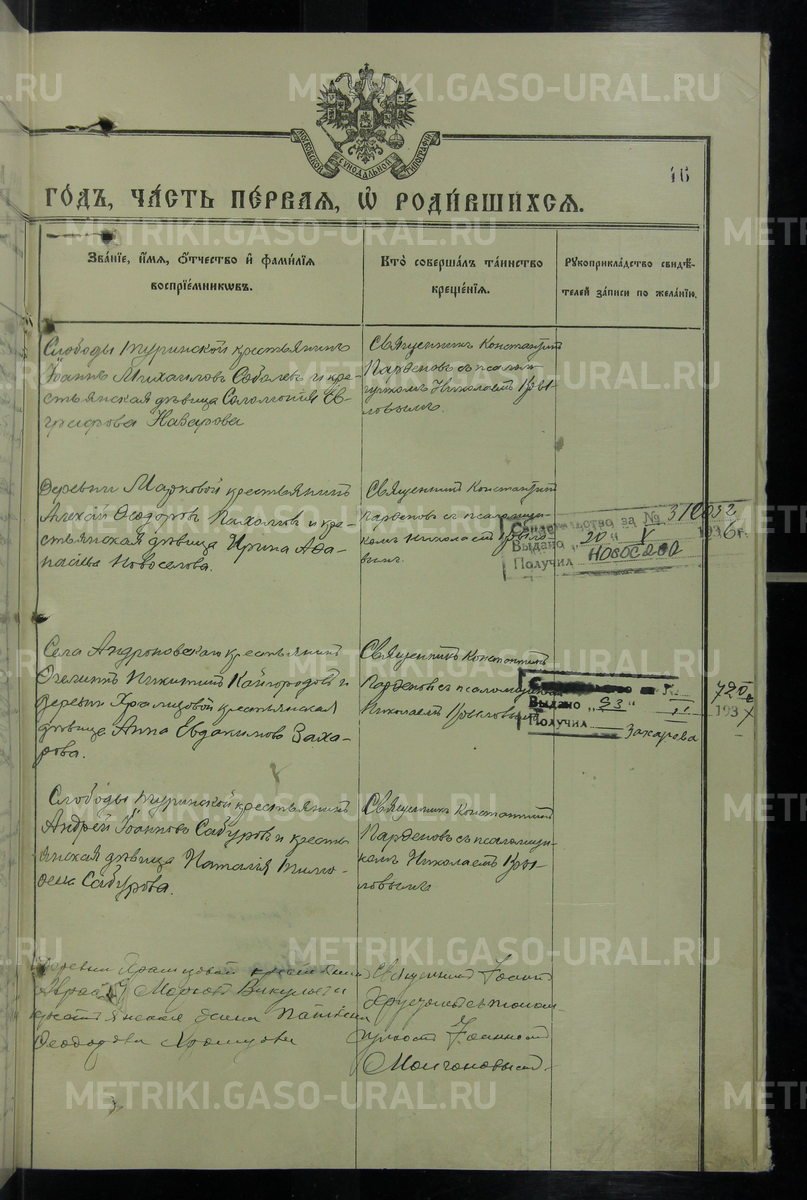 METRIKI.GASO-URAL.RU
МОСКОВСКОЙ СѴНОДАЛЬНОЙ ТИПОГРАФІИ
46
ГОДЪ, ЧАСТЬ ПЕРВАЯ, Ѡ РОДИВШИХСЯ.
Званіе, имя, отчество и фамилія
воспріемниковъ.
Кто совершалъ таинство
крещенія.
Рукоприкладство свидѣ-
телей записи по желанію.
Слободы Туринской крестьянинъ
Іоаннъ Михаиловъ и кре-
стьянская дѣвица Соломонія Ев-
графова Назарова
Священникъ Константинъ
Парѳеновъ съ псалом-
щикомъ Николаемъ Кры-
ловымъ.
Деревни Марковой крестьянинъ
Алексѣй Ѳеодоровъ Пахомовъ и кре-
стьянская дѣвица Ирина Аѳа-
насьева Новоселова.
Священникъ Константинъ
Парѳеновъ съ псаломщи-
комъ Николаемъ Крыло-
вымъ.
Свидетельство за №
Выдано „20“ V 1936 г.
Получил
Села Андроновскаго крестьянинъ
Никитинъ Кайгородовъ и
деревни Храмцовой крестьянская
дѣвица Анна Евдакимова Заха-
рова.
Священникъ Константинъ
Парѳеновъ съ псаломщикомъ
Николаемъ Крыловымъ
720
Выдано „23“ 1937
Получил Захарова
Слободы Туринской крестьянинъ
Андрей Іоанновъ Сабуровъ и кресть-
янская дѣвица Наталія Тимо-
ѳеева Сабурова.
Священникъ Константинъ
Парѳеновъ съ псаломщи-
комъ Николаемъ Кры-
ловымъ
Деревни Храмцовой крестьянинъ
Викульевъ и
крестьянская
Ѳеодорова Храмцова
Священникъ Іоаннъ
съ псалом-
щикомъ Іоанномъ